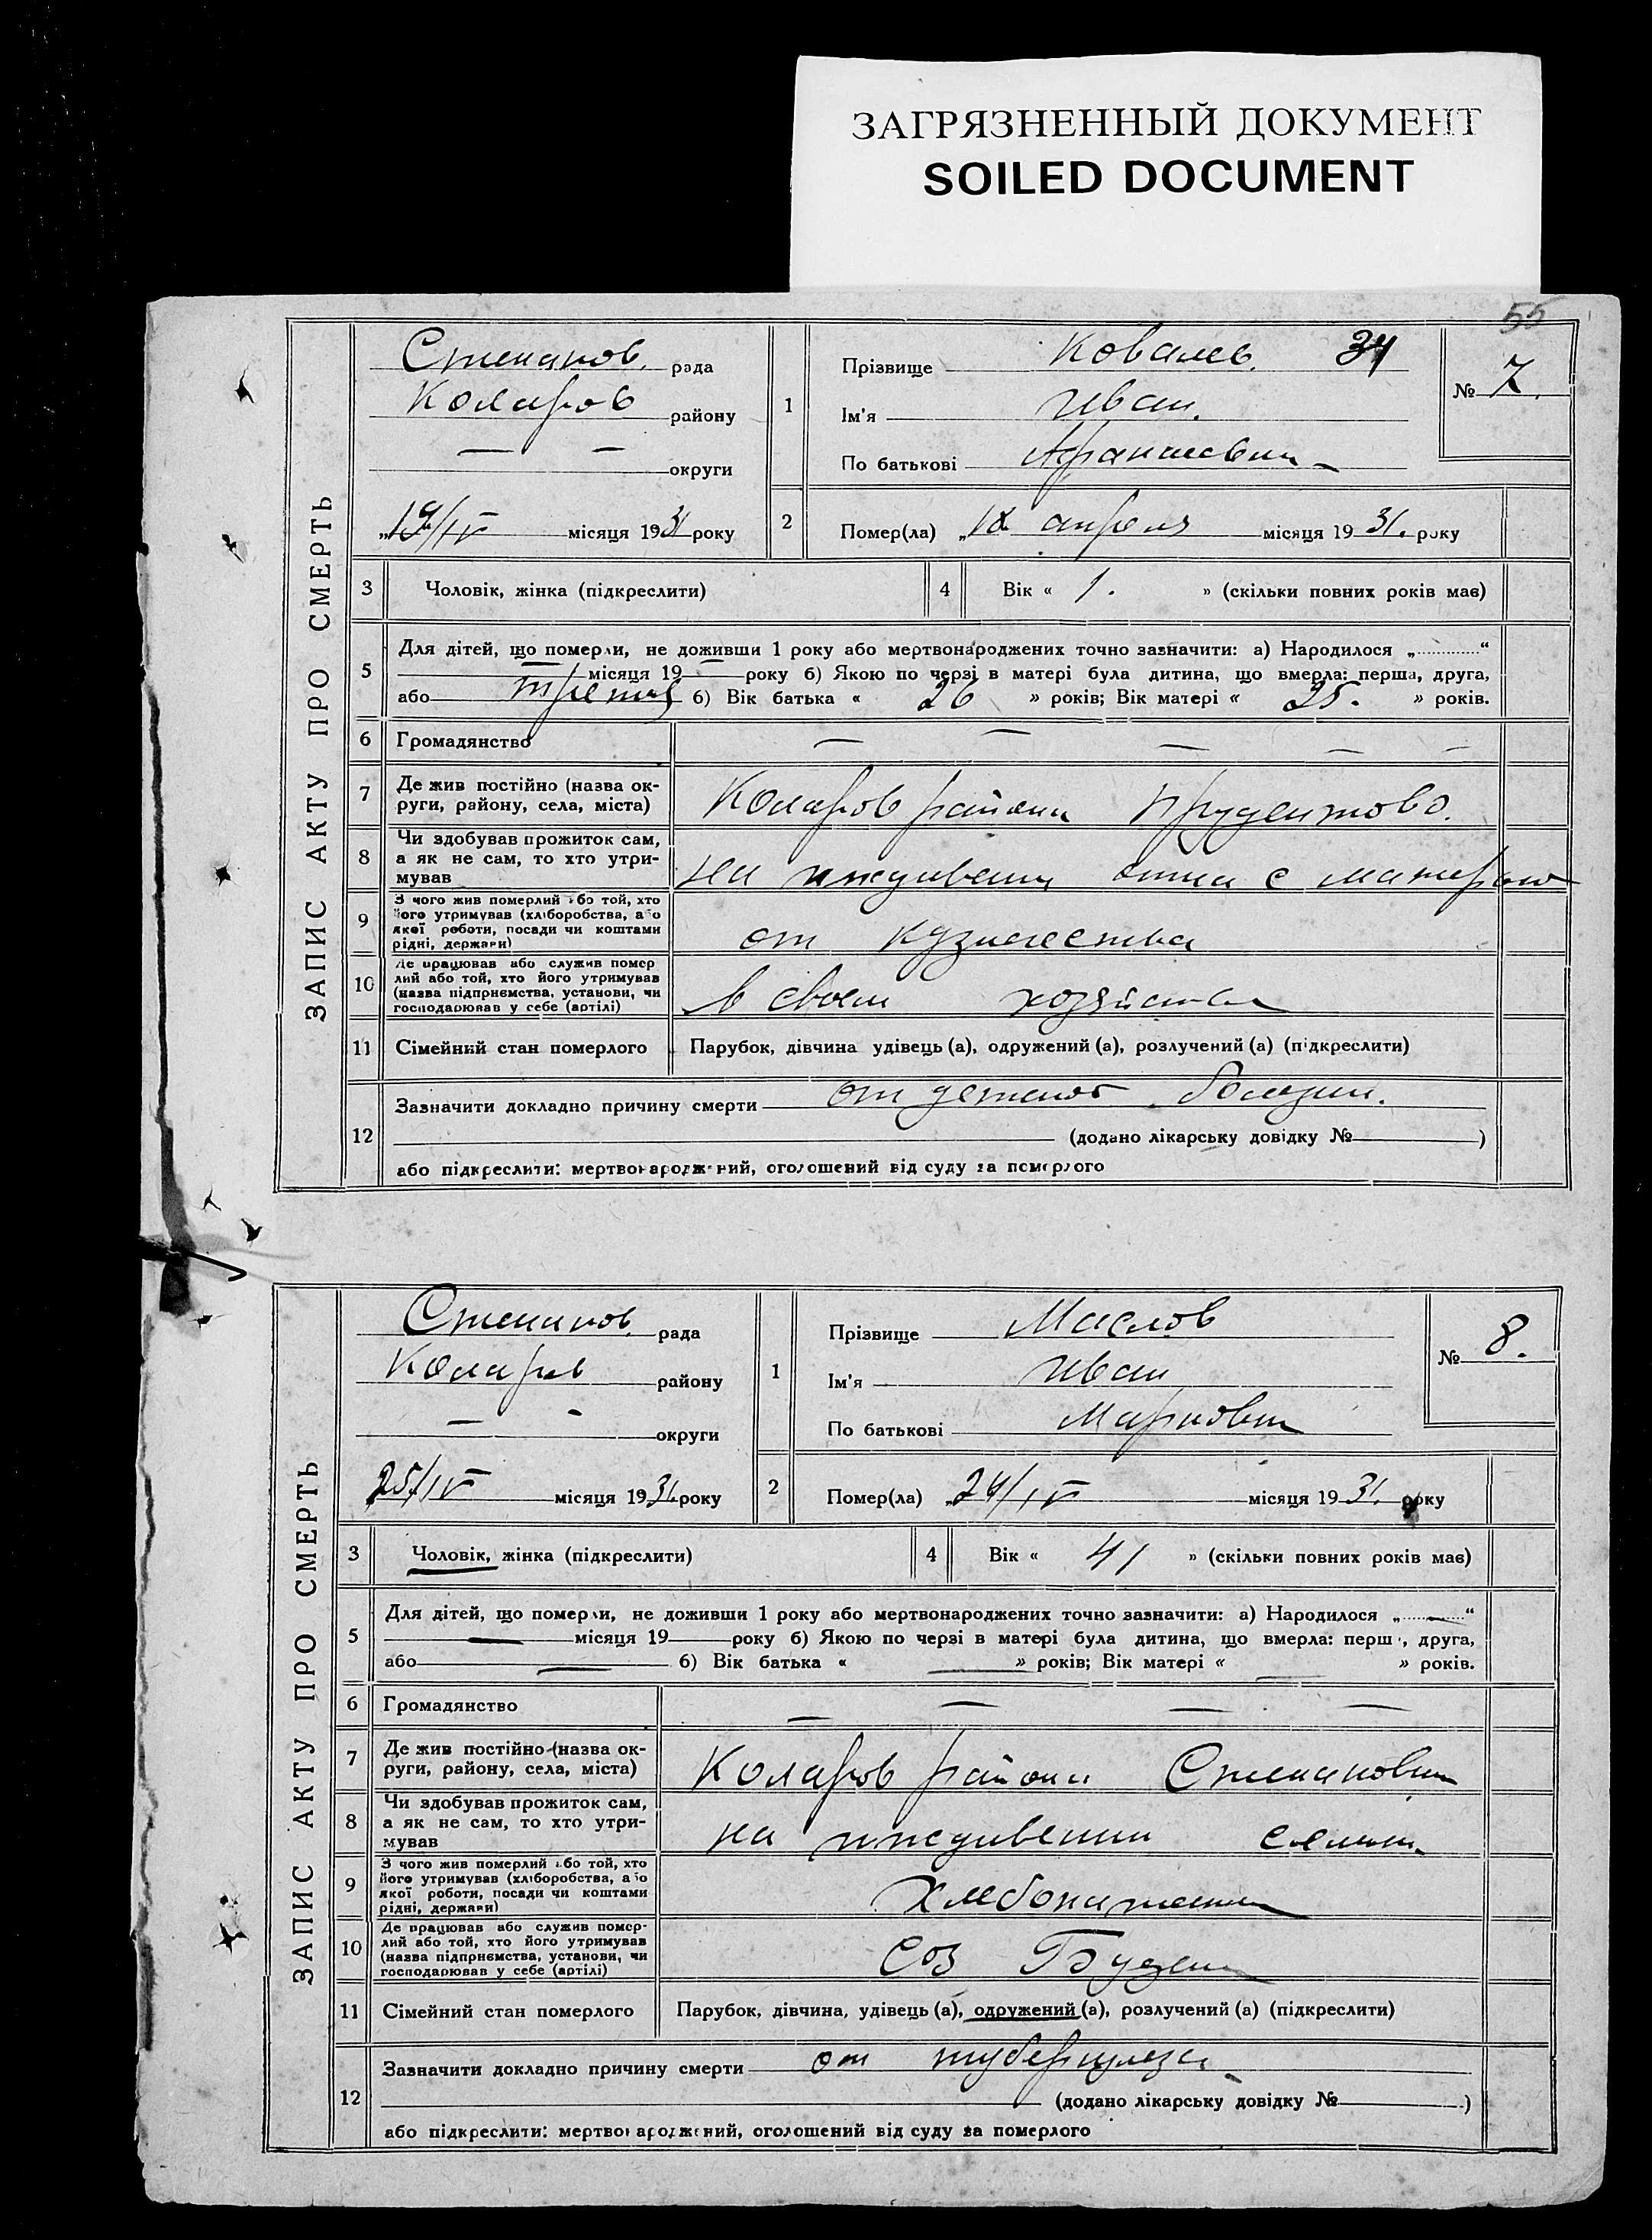 ЗАГРЯЗНЕННЫЙ ДОКУМЕНТ
SOILED DOCUMENT
55
ЗАПИС АКТУ ПРО СМЕРТЬ
Степанов. рада
Коларов району
— — округи
„19/IV місяця 1931 року
1
Прізвище Ковалев. 34
Ім'я Иван.
По батькові Афанасьевич
№ 7.
2 Помер(ла) „18 апреля місяця 1931. року
3 Чоловік, жінка (підкреслити)
4 Вік « 1. » (скільки повних років має)
5 Для дітей, що померли, не доживши 1 року або мертвонароджених точно зазначити: а) Народилося „ “
— місяця 19— року б) Якою по черзі в матері була дитина, що вмерла: перша, друга,
або третий б) Вік батька « 26 » років; Вік матері « 25. » років.
6 Громадянство — — — — —
7 Де жив постійно (назва округи, району, села, міста) Коларов района
8 Чи здобував прожиток сам, а як не сам, то хто утримував на иждивении отца с матерью
9 З чого жив померлий або той, хто його утримував (хліборобства, або якої роботи, посади чи коштами рідні, держави) от кузнечества
10 Де працював або служив померлий або той, хто його утримував (назва підприємства, установи, чи господарював у себе (артілі) в своем хозяйстве
11 Сімейний стан померлого Парубок, дівчина удівець (а), одружений (а), розлучений (а) (підкреслити)
12 Зазначити докладно причину смерти от детской болезни.
(додано лікарську довідку № )
або підкреслити: мертвонароджений, оголошений від суду за померлого
ЗАПИС АКТУ ПРО СМЕРТЬ
Степанов. рада
Коларов району
— - округи
25/IV місяця 1931. року
1
Прізвище Маслов
Ім'я Иван
По батькові Маркович
№ 8.
2 Помер(ла) „24/IV місяця 1931. року
3 Чоловік, жінка (підкреслити)
4 Вік « 41 » (скільки повних років має)
5 Для дітей, що померли, не доживши 1 року або мертвонароджених точно зазначити: а) Народилося „ — “
— місяця 19 року б) Якою по черзі в матері була дитина, що вмерла: перша, друга,
або — б) Вік батька « — » років; Вік матері « — » років.
6 Громадянство — — — —
7 Де жив постійно (назва округи, району, села, міста) Коларов района Степановки
8 Чи здобував прожиток сам, а як не сам, то хто утримував на иждивении семьи.
9 З чого жив померлий або той, хто його утримував (хліборобства, або якої роботи, посади чи коштами рідні, держави) Хлебопашеств
10 Де працював або служив померлий або той, хто його утримував (назва підприємства, установи, чи господарював у себе (артілі) Соз
11 Сімейний стан померлого Парубок, дівчина, удівець (а), одружений (а), розлучений (а) (підкреслити)
12 Зазначити докладно причину смерти от туберкулеза
(додано лікарську довідку № )
або підкреслити: мертвонароджений, оголошений від суду за померлого